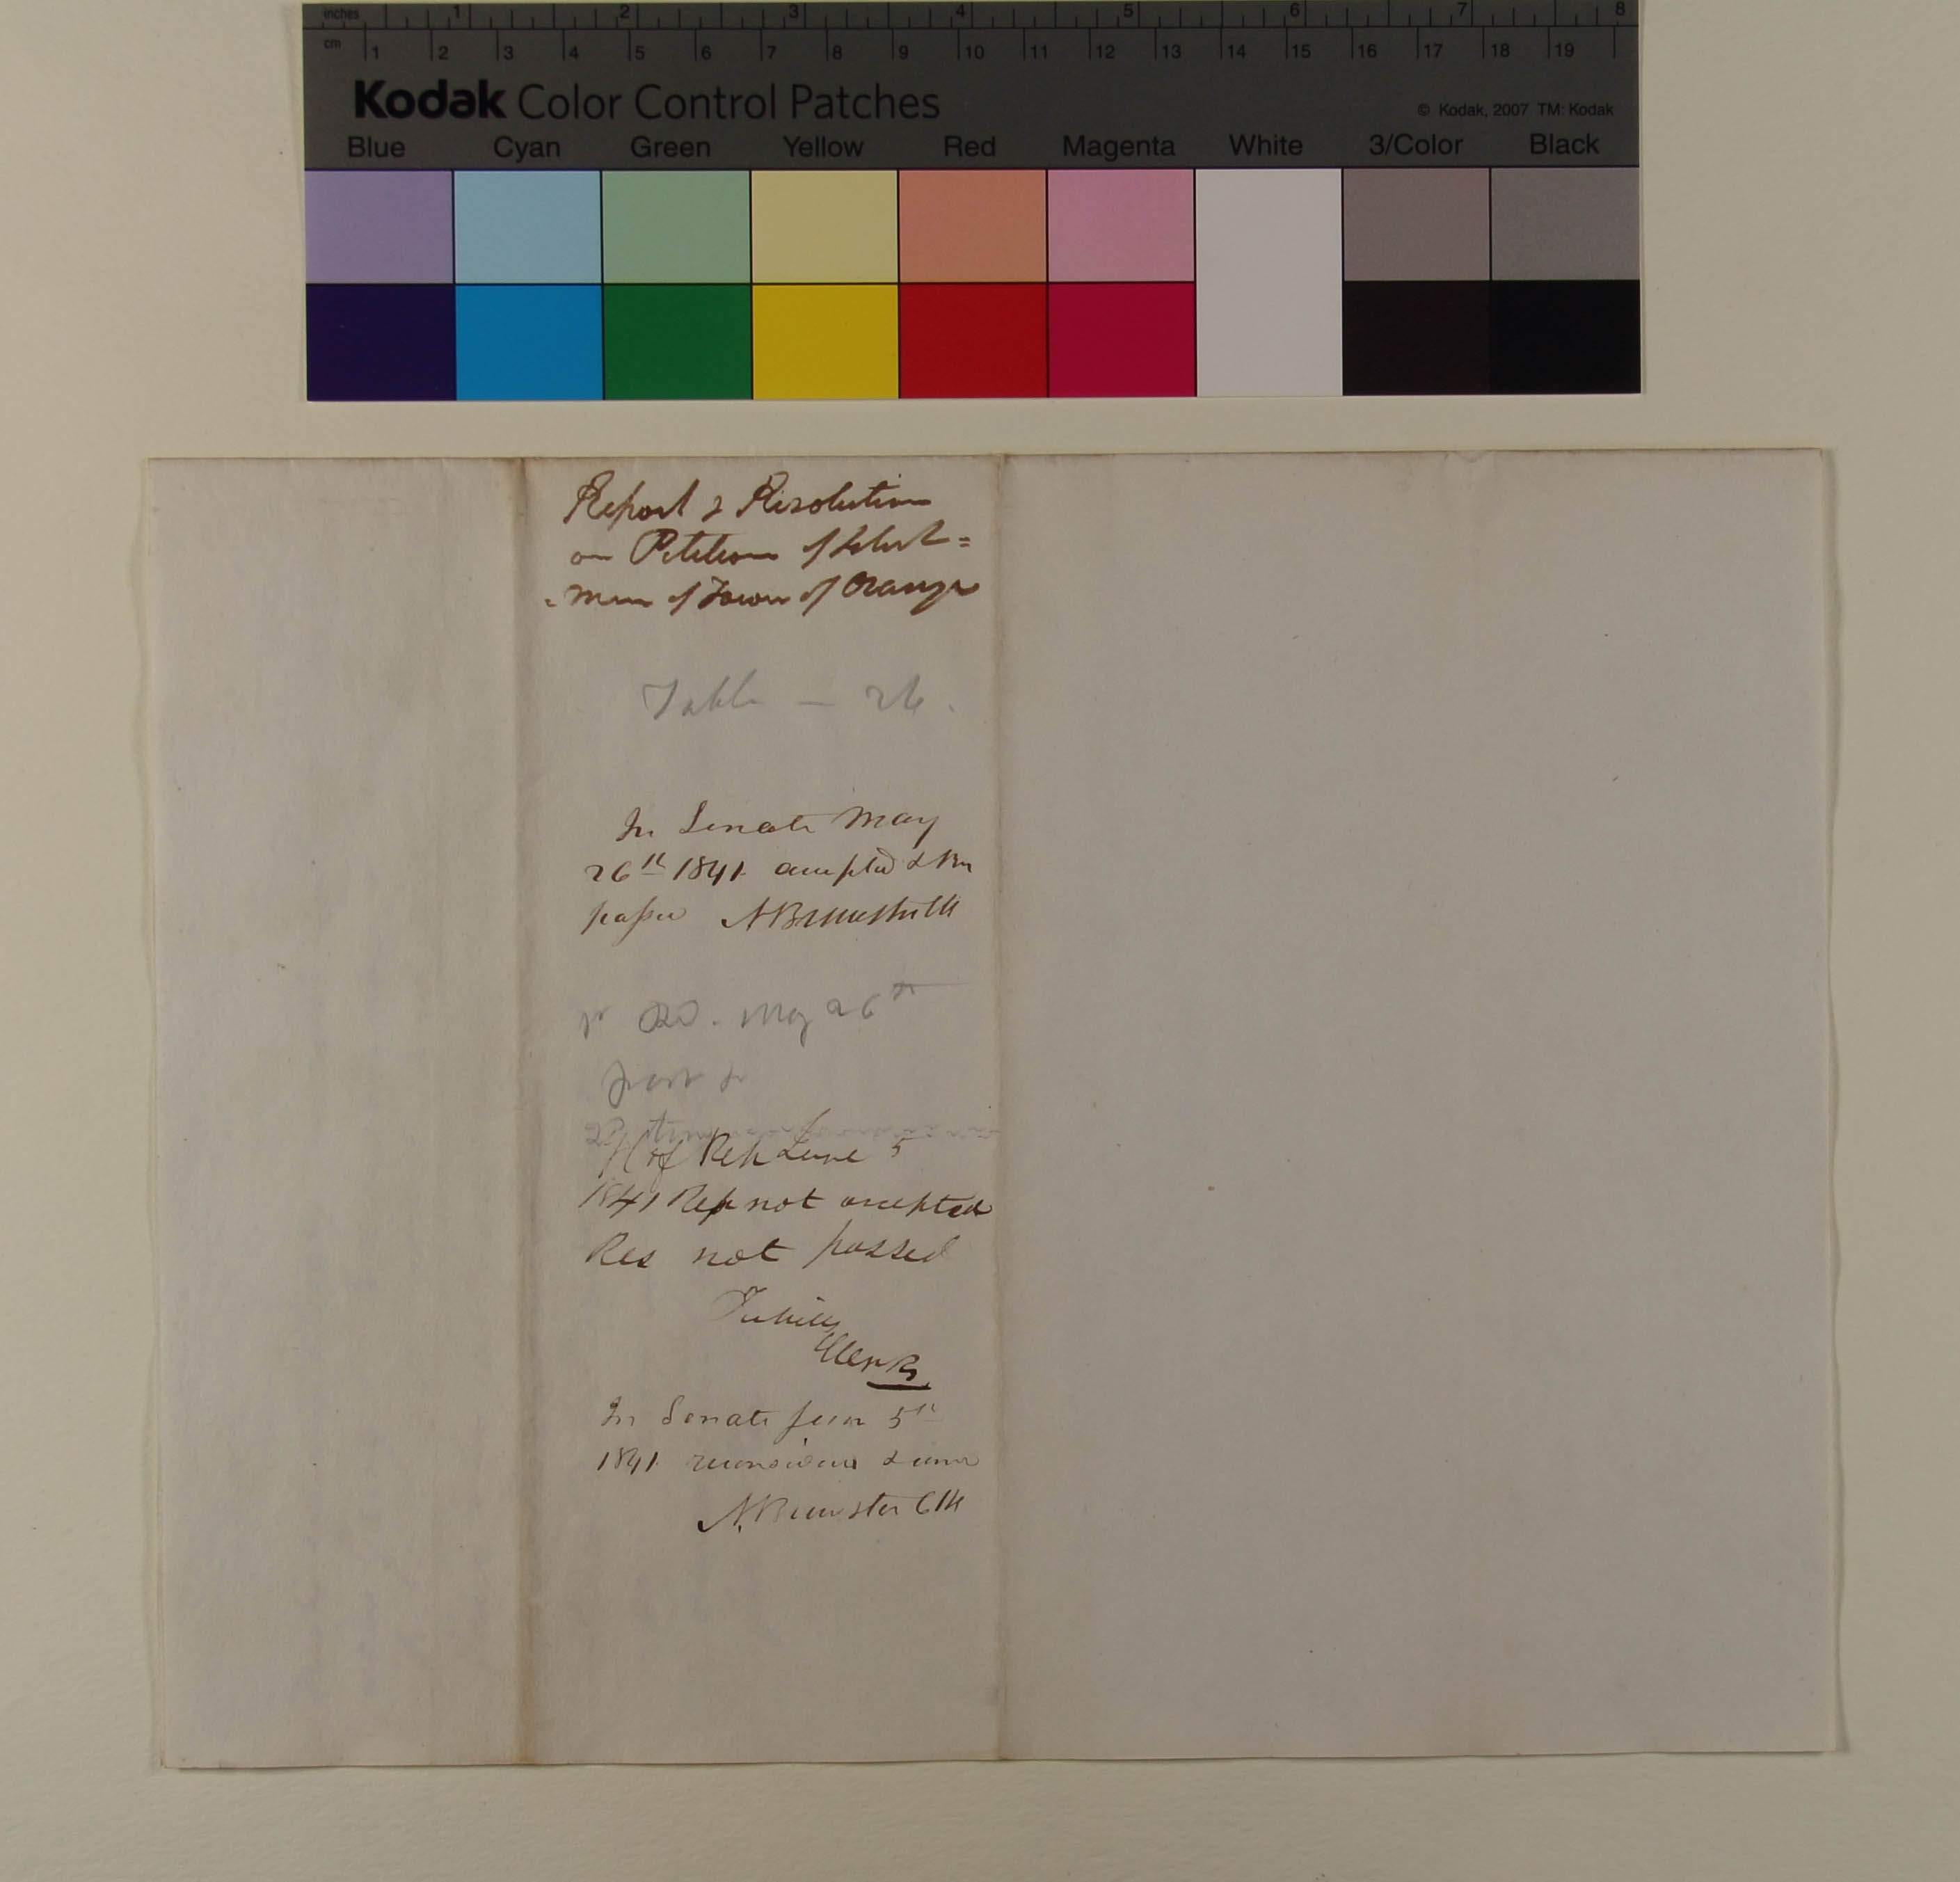 inches 1 2 3 4 5 6 7 8
cm 1 2 3 4 5 6 7 8 9 10 11 12 13 14 15 16 17 18 19
Kodak Color Control Patches
© Kodak, 2007 TM: Kodak
Blue Cyan Green Yellow Red Magenta White 3/Color Black
Report & Resolution
on Petition of Select=
=men of Town of Orange
Table — 26.
In Senate May
26th 1841 accepted & Res
passed
May 26th
H of Rep June 5
1841 Rep not accepted
Res not passed
Clerk
In Senate June 5th
1841
N. Brewster Clk